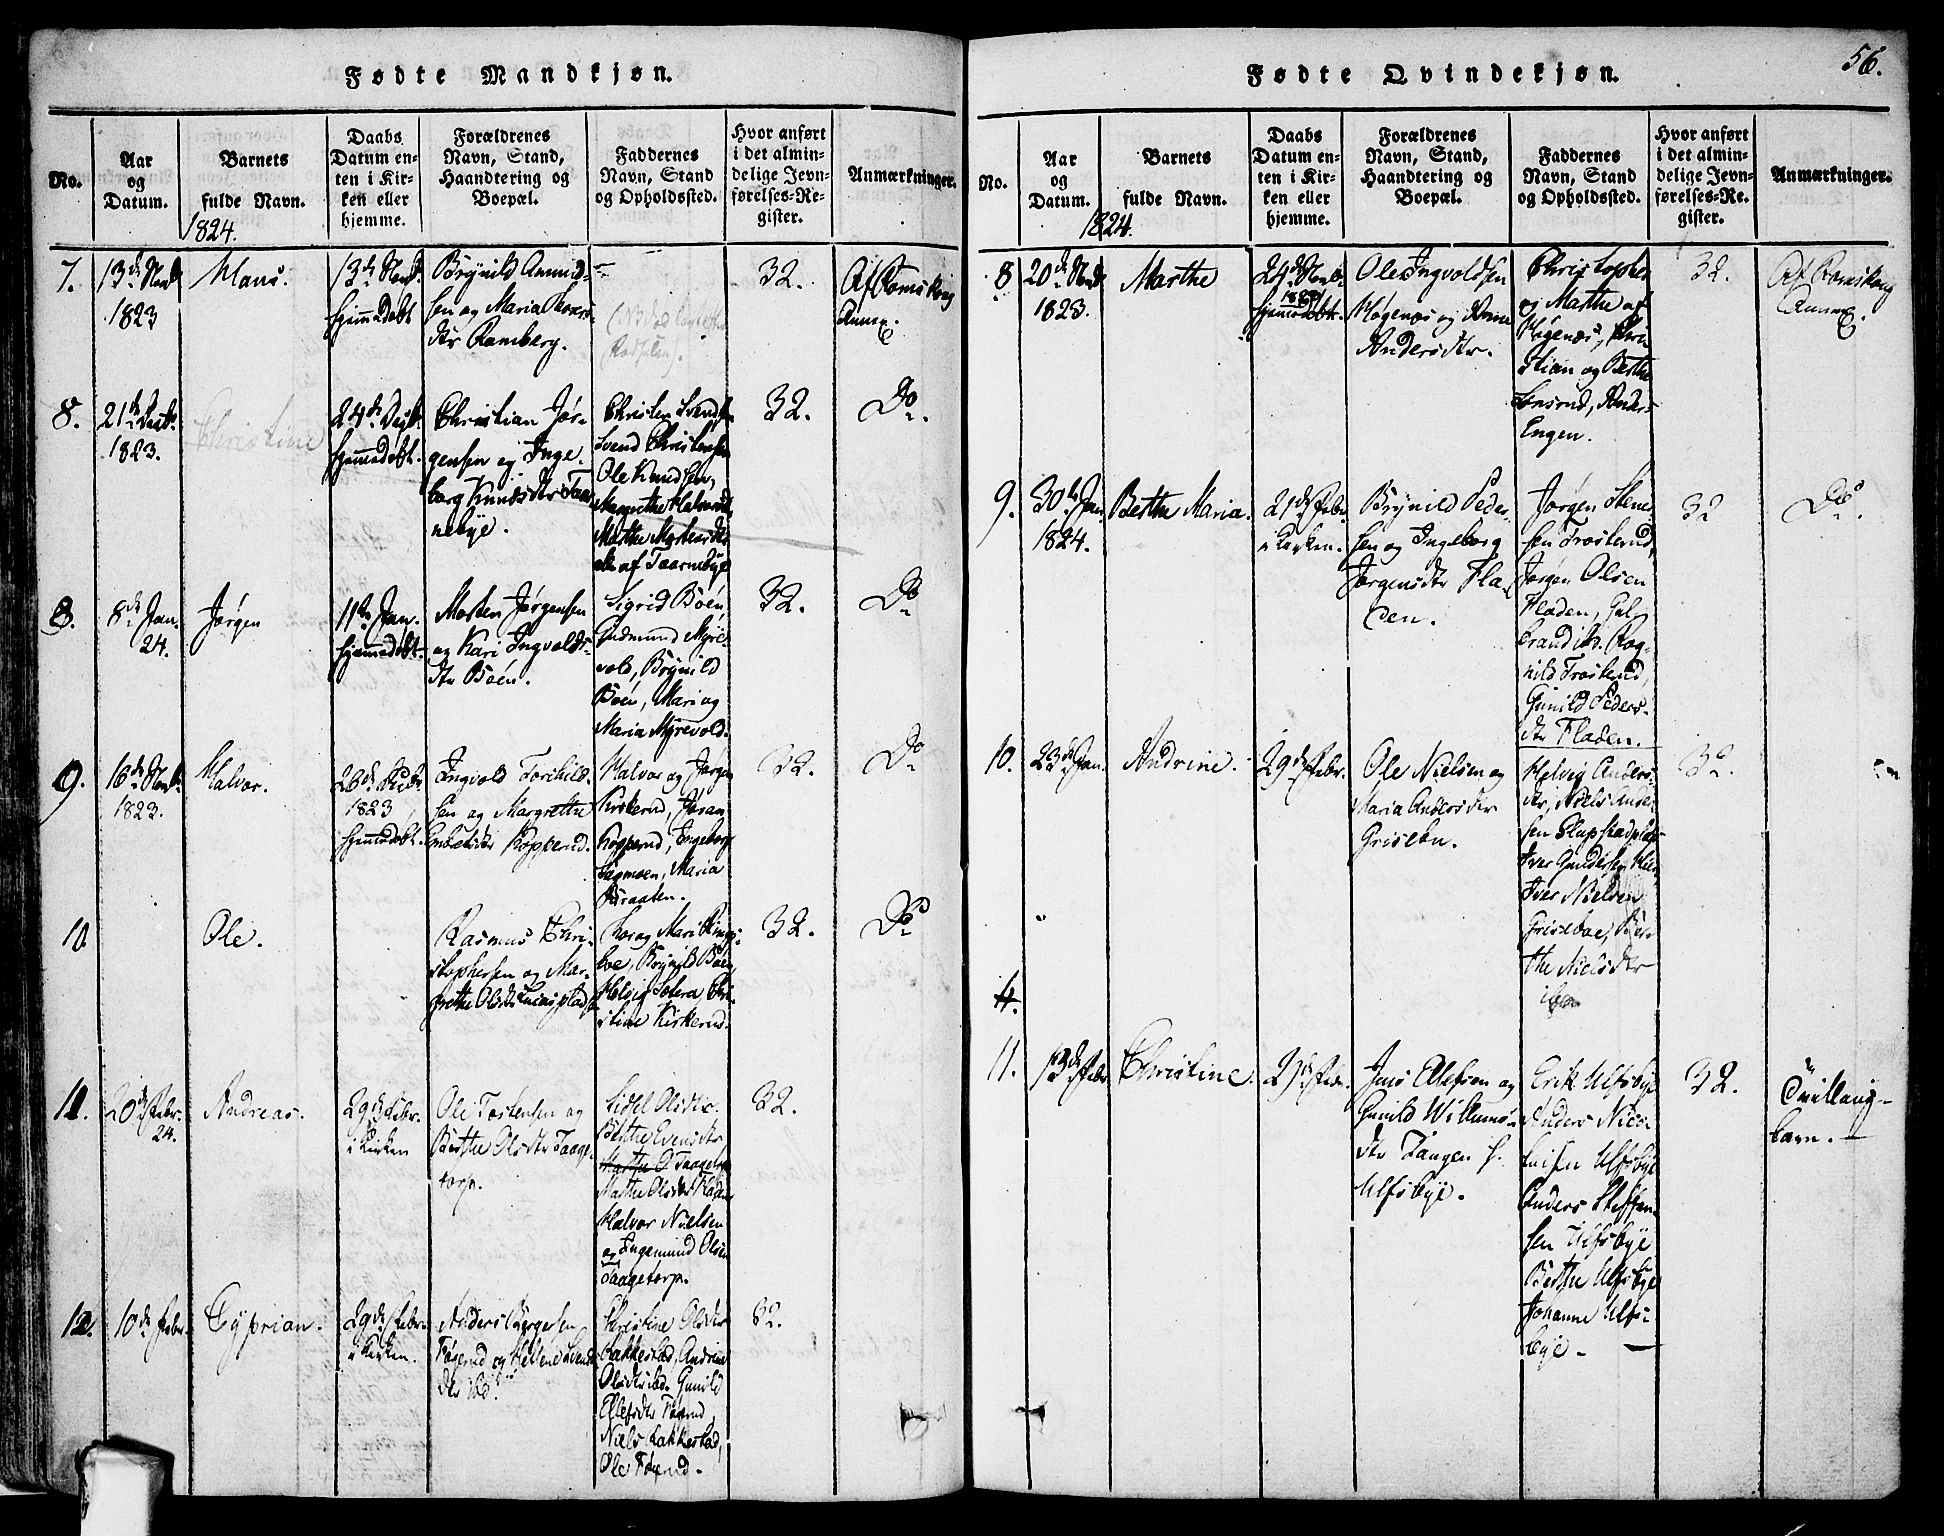 56.
Fødte Mandkjøn.
No.
Aar
og
Datum.
Barnets
fulde Navn.
Daabs
Datum en-
ten i Kir-
ken eller
hjemme.
Forældrenes
Navn, Stand,
Haandtering og
Boepæl.
Faddernes
Navn, Stand
og Opholdssted.
Hvor anført
i det almin-
delige Jevn-
førelses-Re-
gister.
Anmærkninger.
1824.
7.
13de
1823
Hans.
13de
hjemmedøbt
Brynild Amund-
sen og Maria
dtr Ramberg.
32.
Af Romskoug
Annex.
8.
21de
1823.
Christine
24de
hjemmedøbt.
Christian Jør-
gensen og Inge-
borg Knudsdtr Taar-
nebye.
Christen Svendsen
Svend Christensen
Ole Knudsen,
Margrethe Halvorsd
Marthe
alle af Taarnebye
32.
Do.
8.
8de Jan.
24.
Jørgen
11te Jan.
hjemmedøbt.
Morten Jørgensen
og Kari Ingvolds-
dtr Böen.
Sigrid Böen,
Gudmund Myre-
vold, Brynild
Böen, Mari og
Maria Myrevold.
32.
Do
9.
16de
1823.
Halvor.
26de
1823
hjemmedøbt.
Ingvold Torchild-
sen og Margrethe
Kopperud.
Halvor og Jørgen
Kirkerud, Jøran
Kopperud, Engeborg
Sagmoen, Maria
Braaten.
32.
Do
10
Ole.
Rasmus Chri-
stophersen og Mar-
grethe Olsdtr
og Mari Rings-
boe, Brynild Böen,
Helvig Chri-
stine Kirkerud.
32.
Do
11.
20de Febr.
24.
Andreas.
29de Febr.
i Kirken
Ole Torstensen og
Berthe Olsdtr Taage-
torp.
Sidsel Olsdtr.
Berthe Evensdtr
Marthe O. Taagetorp
Marthe Olsdtr
Halvor Nielsen
og Ingemund Olsen
Taagetorp.
32.
12.
10de Febr.
Cyprian.
29de Febr.
i Kirken.
Anders Børgesen
Føgerud og Hellene Svends
dtr ibd.
Christine Olsdtr
Rakkestad, Andrine
Olsdtr ibd. Gunild
Ellefsdtr Føgerud,
Niels Rakkestad,
Ole Føgerud.
32.
Fødte Qvindekjøn.
No.
Aar
og
Datum.
Barnets
fulde Navn.
Daabs
Datum en-
ten i Kir-
ken eller
hjemme.
Forældrenes
Navn, Stand,
Haandtering og
Boepæl.
Faddernes
Navn, Stand
og Opholdssted.
Hvor anført
i det almin-
delige Jevn-
førelses-Re-
gister.
Anmærkninger.
1824.
8
20de
1823.
Marthe
24de
1823
hjemmedøbt.
Ole Ingvoldsen
Høgenæs og Anne
Andersdtr.
Christopher
og Marthe af
Høgenæs, Chri-
stian og Berthe
Anders
Engen.
32.
Af Romskoug
Annex.
9.
30te Jan.
1824.
Berthe Maria.
21de Febr.
i Kirken.
Brynild Peder-
sen og Ingeborg
Jørgensdtr Fla-
den.
Jørgen Stene-
sen Trosterud,
Jørgen Olsen
Fladen, Gul-
brand ib. Rag-
nild Trosterud,
Gunild Peders-
dtr Fladen.
32
Do.
10.
23de Jan.
Andrine.
29de Febr.
Ole Nielsen og
Maria Andersdtr
Grisebu.
Helvig Anders-
dtr, Niels Ander-
sen
Iver Gundersen
Iver Nielsen
Griseboe, Ber-
the Nielsdtr
ibm
32
4.
11.
13de Febr
Christine.
29de Febr.
Jens Ellefsen og
Gunild Willums-
dtr Tangen
Ulfsbye.
Erik Ulfsbye
Anders Nico-
laisen Ulfsbye
Anders Steffen-
sen Ulfsbye
Berthe Ulfsbye
Johanne Ulfs-
bye -
32.
Tvilling-
barn. -